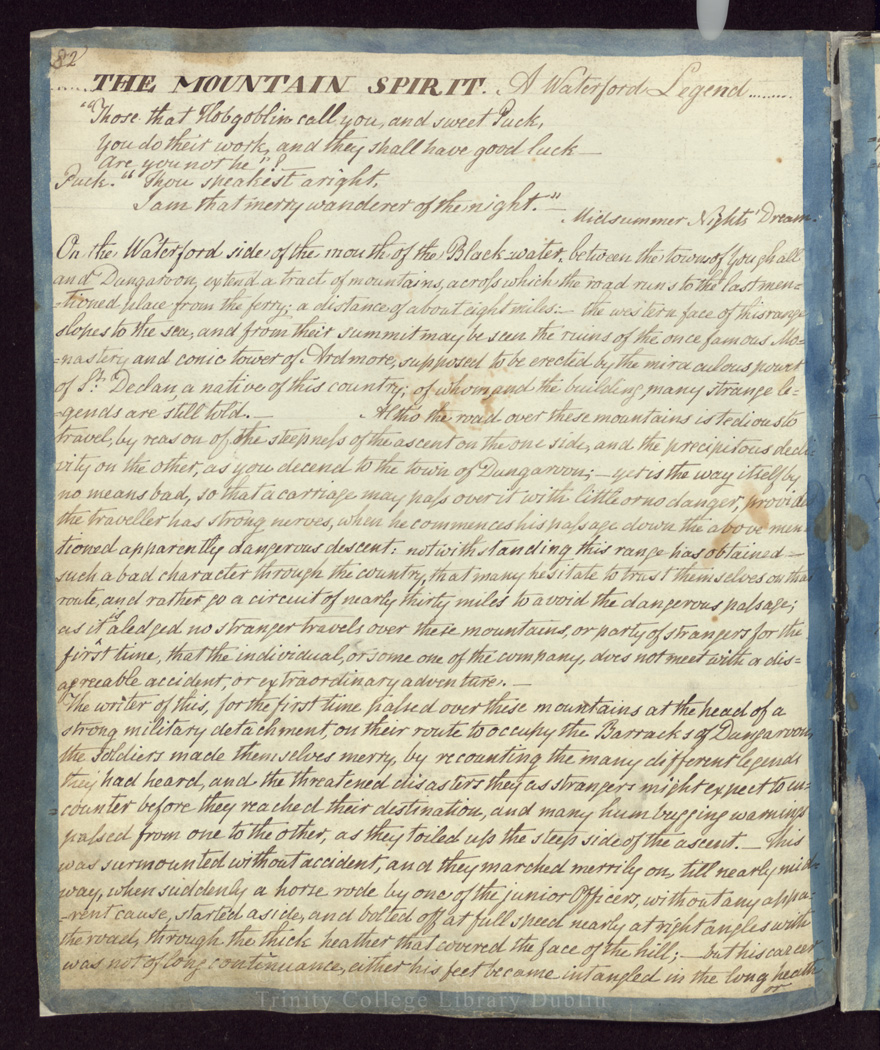 82
.....THE MOUNTAIN SPIRIT. A Waterford Legend........
"Those that Hobgoblin call you, and sweet Puck,
You do their work, and they shall have good luck—
Are you not he"?
Puck. "Thou speakest aright,
I am that merry wanderer of the night."—
Midsummer Nights' Dream.
On the Waterford side of the mouth of the Black water, between the towns of Youghall
and Dungarvon, extend a tract of mountains, across which the road runs to the last men=
=tioned place from the ferry; a distance of about eight miles:— the western face of this range
slopes to the sea, and from their summit may be seen the ruins of the once famous Mo=
=nastery and conic tower of Ardmore, supposed to be erected by the miraculous power
of St. Declan, a native of this country; of whom and the building many strange le=
=gends are still told.— Altho the road over these mountains is tedious to
travel, by reason of the steepness of the ascent on the one side, and the precipitous decli=
vity on the other, as you decend to the town of Dungarvon;— yet is the way itself by
no means bad, so that a carriage may pass over it with little or no danger, provided
the traveller has strong nerves, when he commences his passage down the above men=
tioned apparently dangerous descent: notwithstanding this range has obtained—
such a bad character through the country, that many hesitate to trust themselves on that
route, and rather go a circuit of nearly thirty miles to avoid the dangerous passage;
as it is aledged no stranger travels over these mountains, or party of strangers for the
first time, that the individual, or some one of the company, does not meet with a dis=
agreeable accident, or extraordinary adventure.—
The writer of this, for the first time passed over these mountains at the head of a
strong military detachment, on their route to occupy the Barracks of Dungarvon,
the soldiers made themselves merry, by recounting the many different legends
they had heard, and the threatened disasters they as strangers might expect to in=
=counter before they reached their distination, and many humbugging warnings
passed from one to the other, as they toiled up the steep side of the ascent.— This
was surmounted without accident, and they marched merrily on, till nearly mid=
way, when suddenly a horse rode by one of the junior Officers, without any appa=
=rent cause, started aside, and bolted off at full speed nearly at right angles with
the road, through the thick heather that covered the face of the hill;— but his career
was not of long continuance, either his feet became intangled in the long heath
or
Trinity College Library Dublin